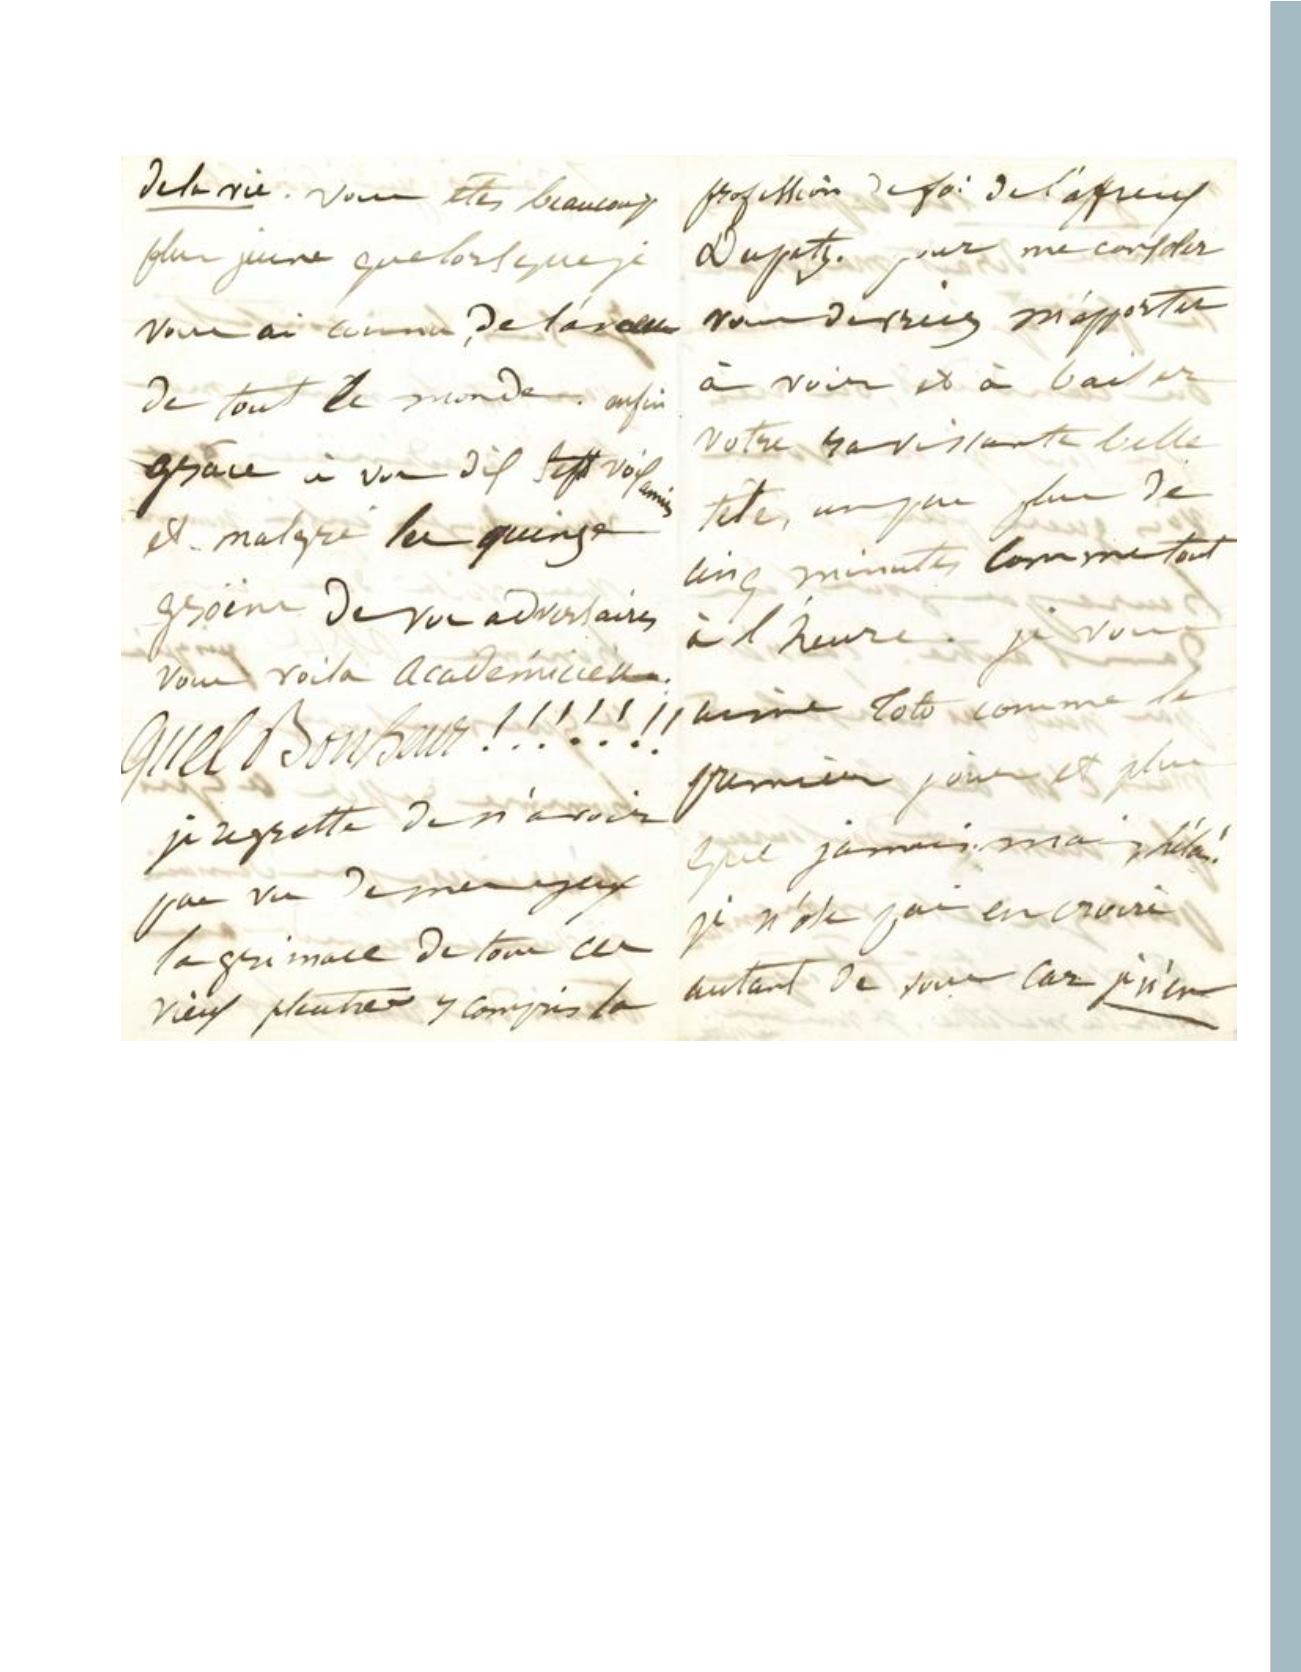 de la vie. vous etes beaucoup
plus jeune que lorsque je
vous ai connu, de l'aveu
de tout le monde. enfin
grâce à vos dix sept voix amies
et malgré les quinze
groins de vos adversaires
vous voila Academicien.
QUEL Bonheur!!!!!!!!
je regrette de n'avoir
pas vu de mes yeux
la grimace de tous ces
vieux pleutres y compris la
profession de foi de l'affreux
Dupaty. pour me consoler
vous devriez m'apporter
à voir et à baiser
votre ravissante belle
tête, un peu plus de
cinq minutes comme tout
à l'heure. je vous
aime Toto comme le
premier jour et plus
que jamais. mais, hélas!
je n'ose pas en croire
autant de vous car je n'en